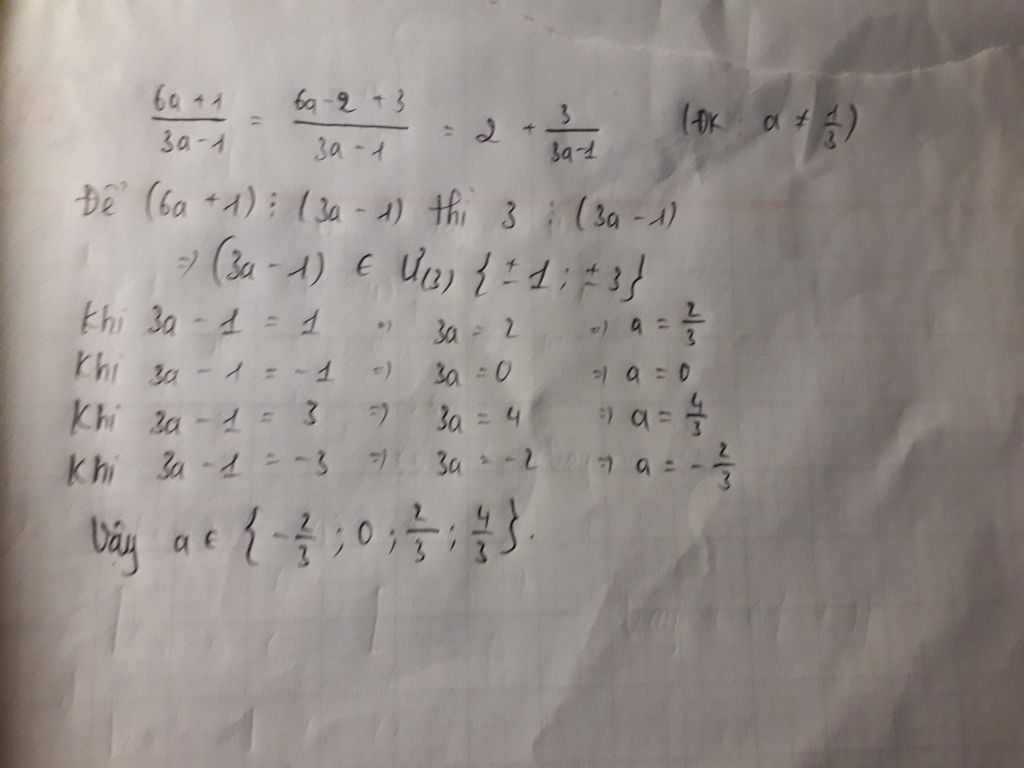 (6a + 1)/(3a - 1) = (6a - 2 + 3)/(3a - 1) = 2 + 3/(3a-1) (ĐK: a ≠ 1/3)
Để (6a + 1) ⋮ (3a - 1) thì 3 ⋮ (3a - 1)
⇒ (3a - 1) ∈ Ư(3) {± 1 ; ± 3}
Khi 3a - 1 = 1 ⇒ 3a = 2 ⇒ a = 2/3
Khi 3a - 1 = -1 ⇒ 3a = 0 ⇒ a = 0
Khi 3a - 1 = 3 ⇒ 3a = 4 ⇒ a = 4/3
Khi 3a - 1 = -3 ⇒ 3a = -2 ⇒ a = -2/3
Vậy a ∈ {-2/3 ; 0 ; 2/3 ; 4/3}.